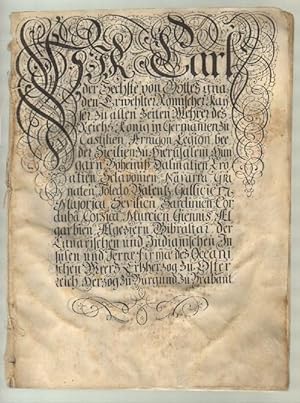 Wir Carl
der Sechste von Gottes gna-
den Erwehlter Römischer Kay-
ser, zu allen Zeiten Mehrer des
Reichs, König in Germanien, zu
Castilien, Arragon, Legion, bey-
der Sicilien, zu Hierusalem, Hun-
garn, Boheimb, Dalmatien, Cro-
atien, Sclavonien, Navarra, Gra-
naten, Toledo, Valentz, Gallicien,
Majorica, Sevilien, Sardinien, Cor-
duba, Corsica, Murcien, Giennis, Al-
garbien, Algeziern, Gibraltar, der
Canarischen und Indianischen In-
sulen und Terrae firmae des Oceani-
schen Meers, Ertzherzog zu Öster-
reich, Herzog zu Burgund, zu Brabant